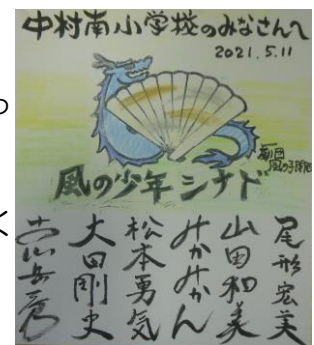 中村南小学校のみなさんへ
2021.5.11
劇団
風の子関西
風の少年シナド
尾形宏美
山田和美
みかみかん
松本勇気
大田剛史
っ
く